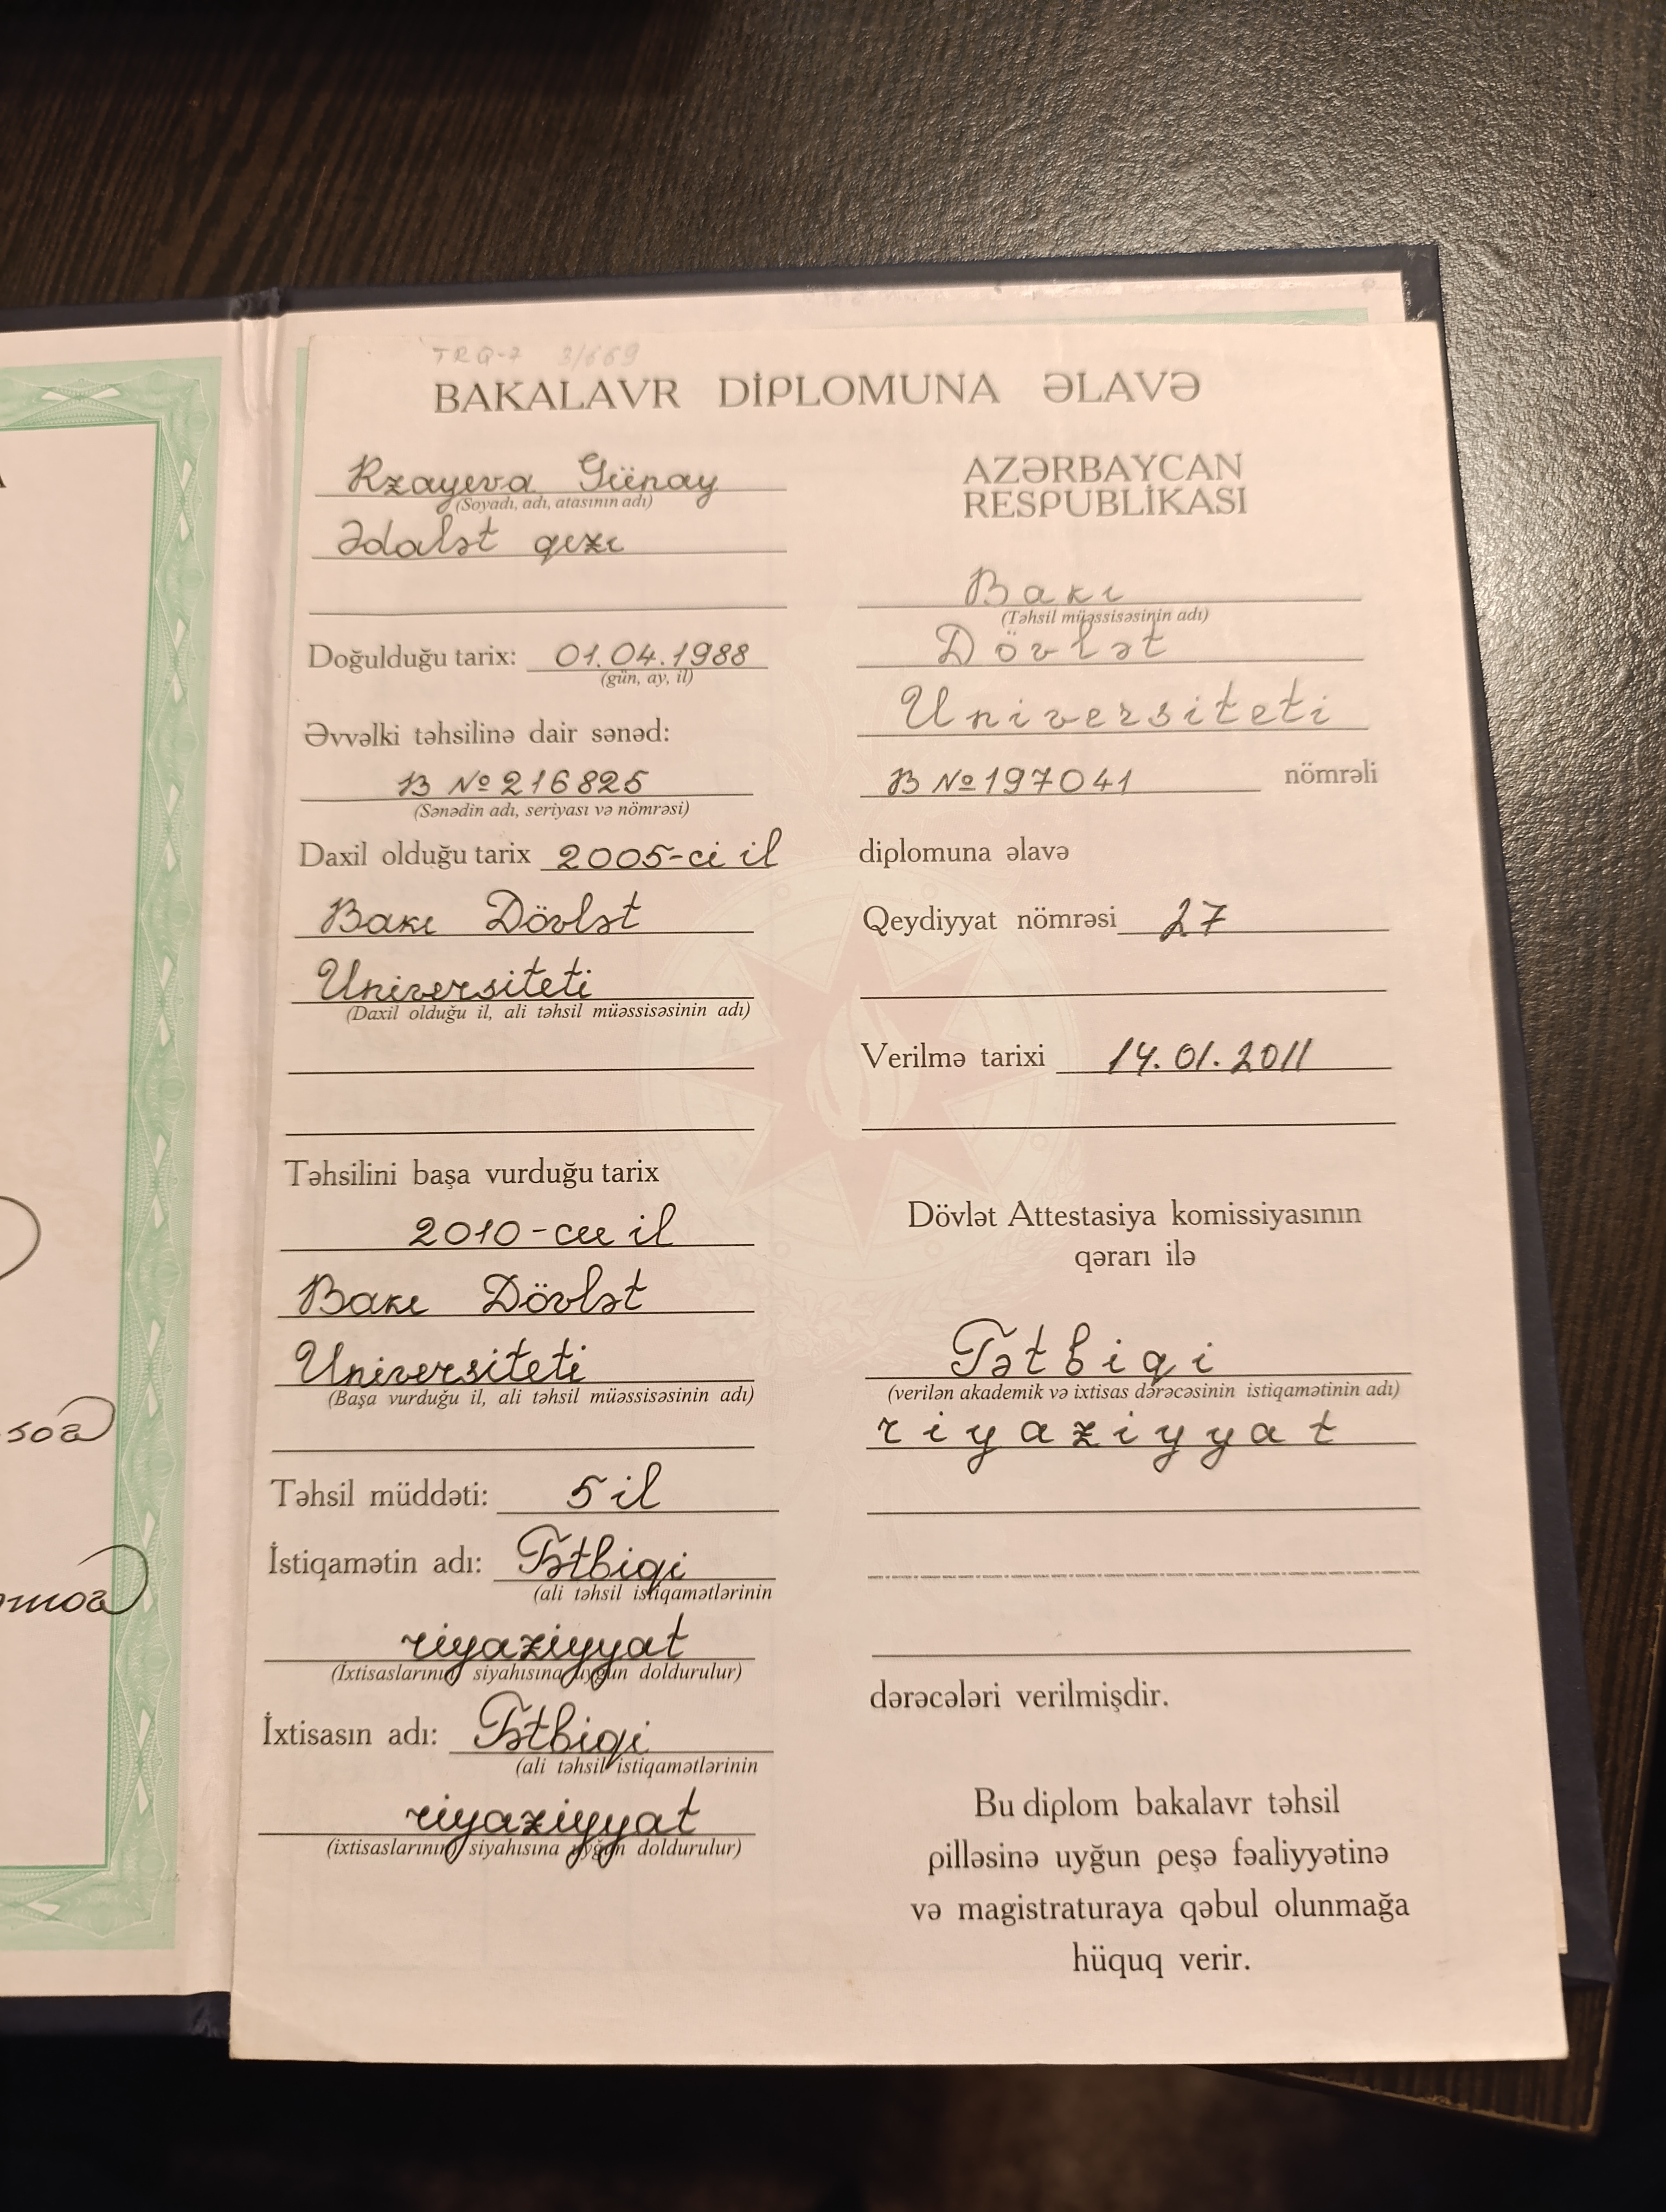 TRQ-7 3/669
BAKALAVR DİPLOMUNA ƏLAVƏ
Rzayeva Günay
(Soyadı, adı, atasının adı)
Ədalət qızı
Doğulduğu tarix: 01.04.1988
(gün, ay, il)
Əvvəlki təhsilinə dair sənəd:
B №216825
(Sənədin adı, seriyası və nömrəsi)
Daxil olduğu tarix 2005-ci il
Bakı Dövlət
Universiteti
(Daxil olduğu il, ali təhsil müəssisəsinin adı)
Təhsilini başa vurduğu tarix
2010-cu il
Bakı Dövlət
Universiteti
(Başa vurduğu il, ali təhsil müəssisəsinin adı)
Təhsil müddəti: 5 il
İstiqamətin adı: Tətbiqi
(ali təhsil istiqamətlərinin
riyaziyyat
(İxtisaslarının siyahısına uyğun doldurulur)
İxtisasın adı: Tətbiqi
(ali təhsil istiqamətlərinin
riyaziyyat
(ixtisaslarının siyahısına uyğun doldurulur)
AZƏRBAYCAN
RESPUBLİKASI
Bakı
(Təhsil müəssisəsinin adı)
Dövlət
Universiteti
B №197041 nömrəli
diplomuna əlavə
Qeydiyyat nömrəsi 27
Verilmə tarixi 14.01.2011
Dövlət Attestasiya komissiyasının
qərarı ilə
Tətbiqi
(verilən akademik və ixtisas dərəcəsinin istiqamətinin adı)
riyaziyyat
dərəcələri verilmişdir.
Bu diplom bakalavr təhsil
pilləsinə uyğun peşə fəaliyyətinə
və magistraturaya qəbul olunmağa
hüquq verir.